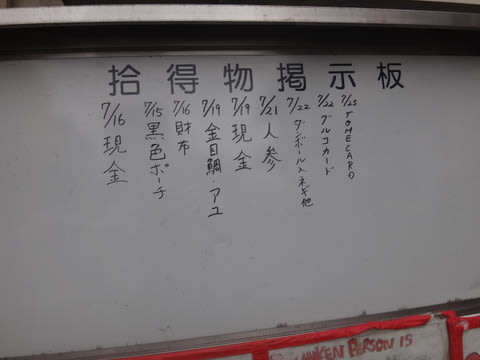 拾得物掲示板
7/16 現金
7/15 黒色ポーチ
7/16 財布
7/19 金目鯛・アユ
7/19 現金
7/21 人参
7/22 ダンボール入ネギ他
7/22 グルコカード
7/25 TOMECARD
PERSON IS